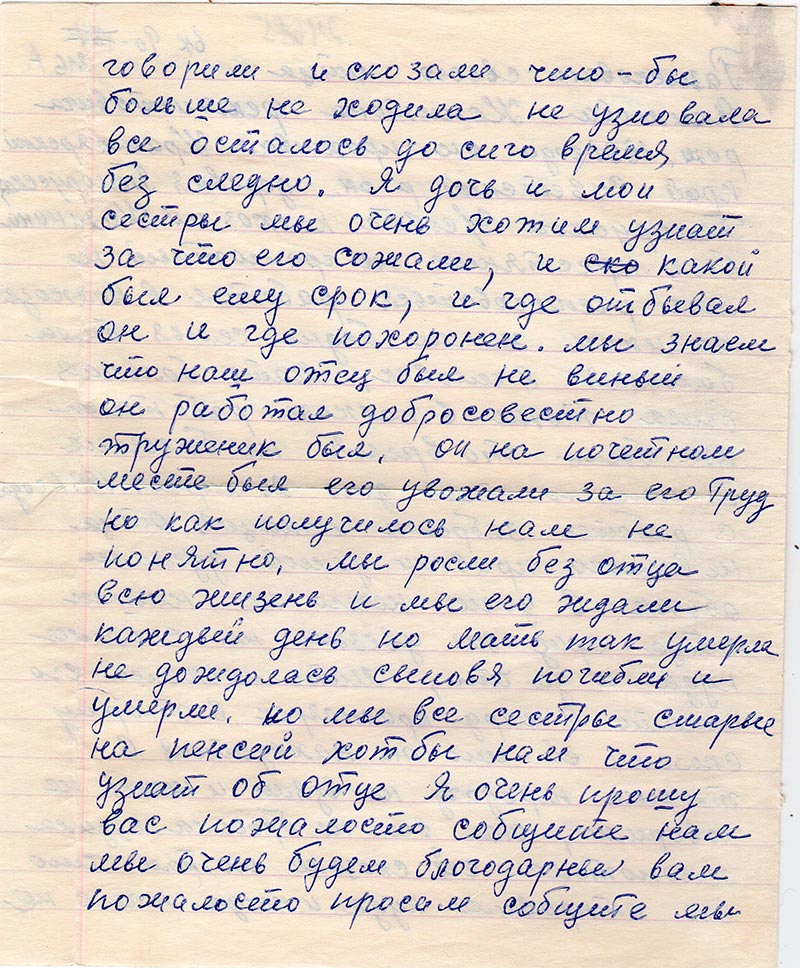 говорили и скозали что-бы
больше не ходила не узновала
все осталось до сиго время
без следно. Я дочь и мои
сестры мы очень хотим узнат
за что его сожали, и ско какой
был ему срок, и где отбывал
он и где похоронен. мы знаем
что наш отец был не виный
он работал добросовестно
труженик был, он на почетном
месте был его уважали за его Труд
но как получилось нам не
понятно, мы росли без отца
всю жизень и мы его ждали
каждый день но мать так умерла
не дождолась сыновя погибли и
умерли. но мы все сестры старые
на пенсий хот бы нам что
узнат об отце Я очень прошу
вас пожалосто собщите нам
мы очень будем благодарны вам
пожалосто просим собщите мы